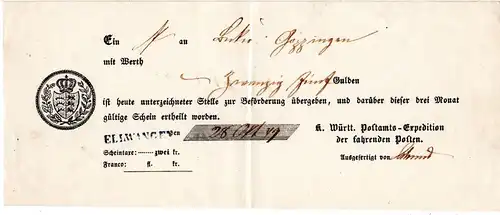 Ein an Göppingen
mit Werth
Zwanzig Fünf Gulden
ist heute unterzeichneter Stelle zur Beförderung übergeben, und darüber dieser drei Monat
gültige Schein ertheilt worden.
ELLWANGEN den 28 Okt 49
K. Württ. Postamts-Expedition
der fahrenden Posten.
Scheintaxe: —— zwei kr.
Franco: fl. kr.
Ausgefertigt von